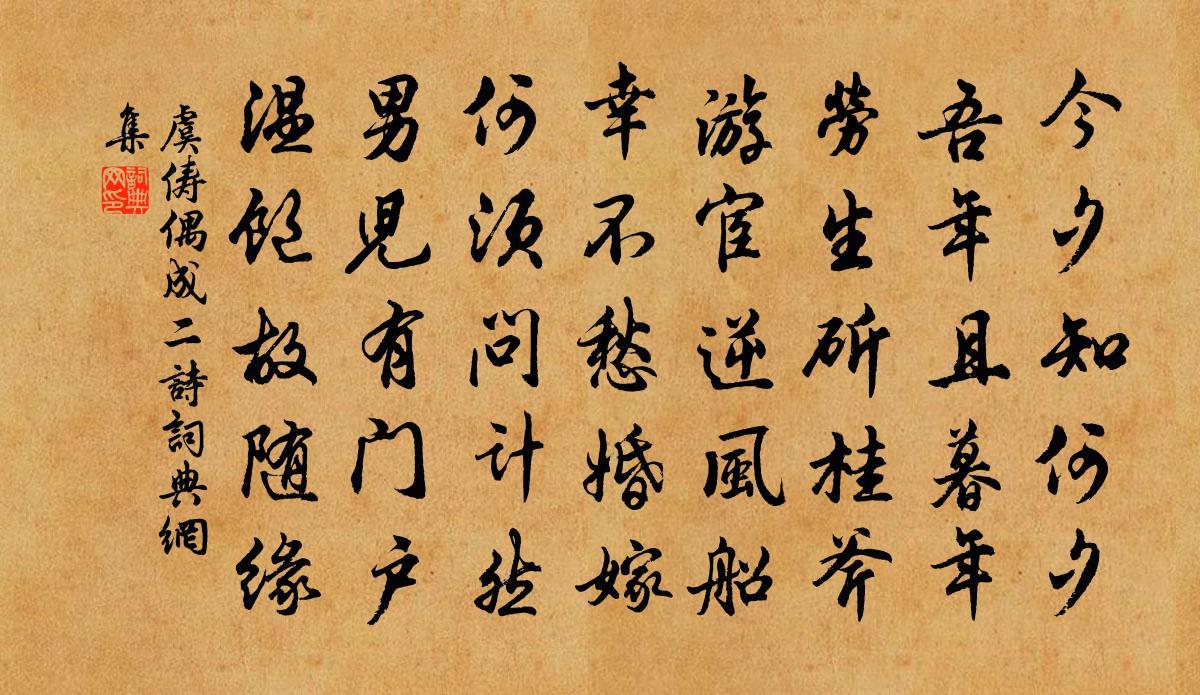 今夕知何夕
吾年且暮年
勞生斫桂斧
游宦逆風船
幸不愁婚嫁
何須問計然
男兒有門户
温飽故随緣
虞儔偶成二詩詞典網
集
詞典網印